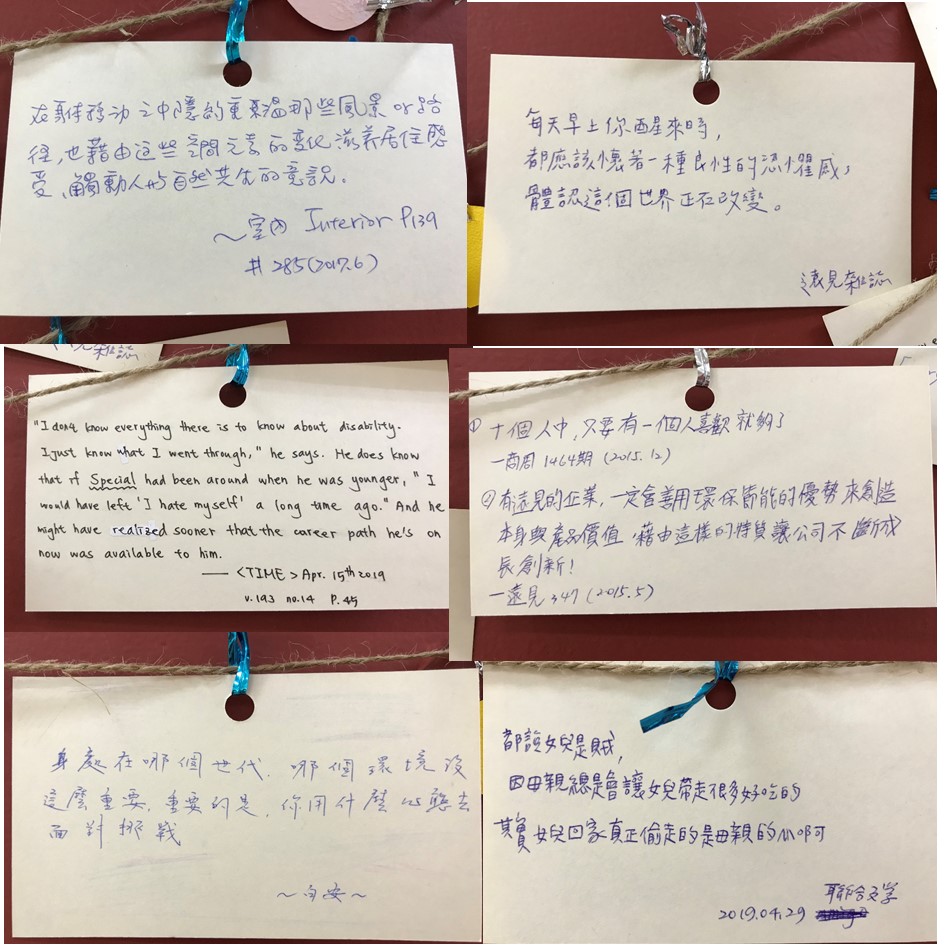 在身體移動之中隱約重溫那些風景or路
徑,也藉由這些空間元素的變化滋養居住感
受、觸動人與自然共生的意識。
~室內 Interior P139
# 285(2017.6)
每天早上你醒來時,
都應該懷著一種良性的恐懼感,
體認這個世界正在改變。
遠見雜誌
見雜誌
"I don't know everything there is to know about disability.
I just know what I went through," he says. He does know
that if Special had been around when he was younger, "I
would have left 'I hate myself' a long time ago." And he
might have realized sooner that the career path he's on
now was available to him.
—— <TIME> Apr. 15th 2019
v.193 no.14 P.45
① 十個人中,只要有一個人喜歡就夠了
—商周 1464期 (2015.12)
② 有遠見的企業,一定會善用環保節能的優勢來創造
本身與產品價值,藉由這樣的特質讓公司不斷成
長創新!
—遠見 347 (2015.5)
身處在哪個世代.哪個環境沒
這麼重要.重要的是,你用什麼心態去
面對挑戰
~白安~
都說女兒是賊,
因母親總是會讓女兒帶走很多好吃的
其實女兒回家真正偷走的是母親的心啊
聯合文學
2019.04.29